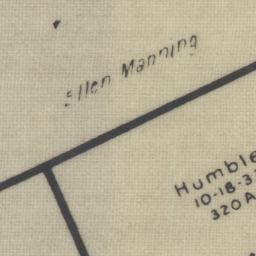 Ellen Manning
Humble
10-18-3
320 A